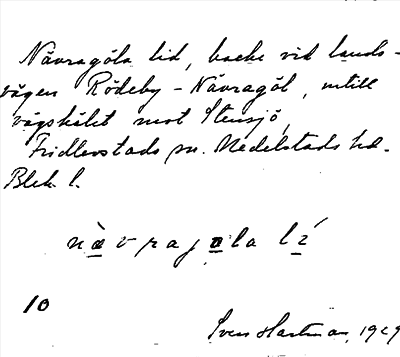 Nävragöla lid, backe vid lands-
vägen Rödeby - Nävragöl, intill
vägskälet mot Stensjö,
Fridlevstads sn. Medelstads hd.
Blek. l.
nävragola lí
10
Sven Hartman, 1929